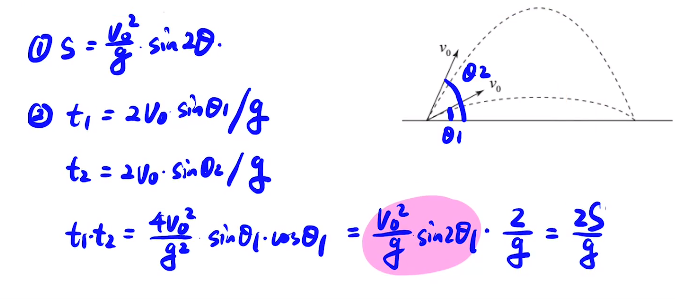 ① S = v₀²/g · sin2θ.
② t₁ = 2v₀ sinθ₁/g
t₂ = 2v₀·sinθ₂/g
t₁·t₂ = 4v₀²/g² sinθ₁·cosθ₁ = v₀²/g sin2θ₁ · 2/g = 2S/g
v₀
θ2
v₀
θ1